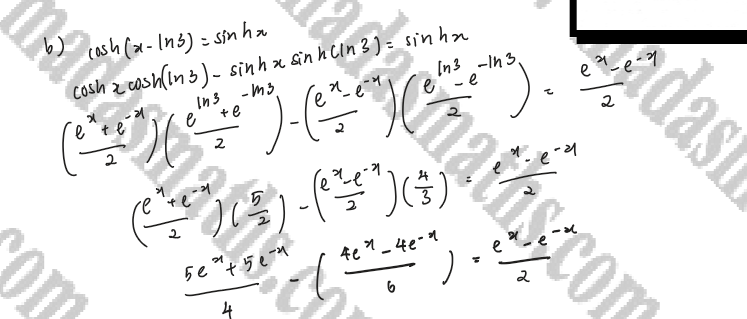 b) cosh(x-ln3) = sinhx
coshxcosh(ln3) - sinhx sinh(ln3) = sinhx
((e^x + e^-x)/2)((e^ln3 + e^-ln3)/2) - ((e^x - e^-x)/2)((e^ln3 - e^-ln3)/2) = (e^x - e^-x)/2
((e^x + e^-x)/2)(5/2) - ((e^x - e^-x)/2)(4/3) = (e^x - e^-x)/2
(5e^x + 5e^-x)/4 - ((4e^x - 4e^-x)/6) = (e^x - e^-x)/2